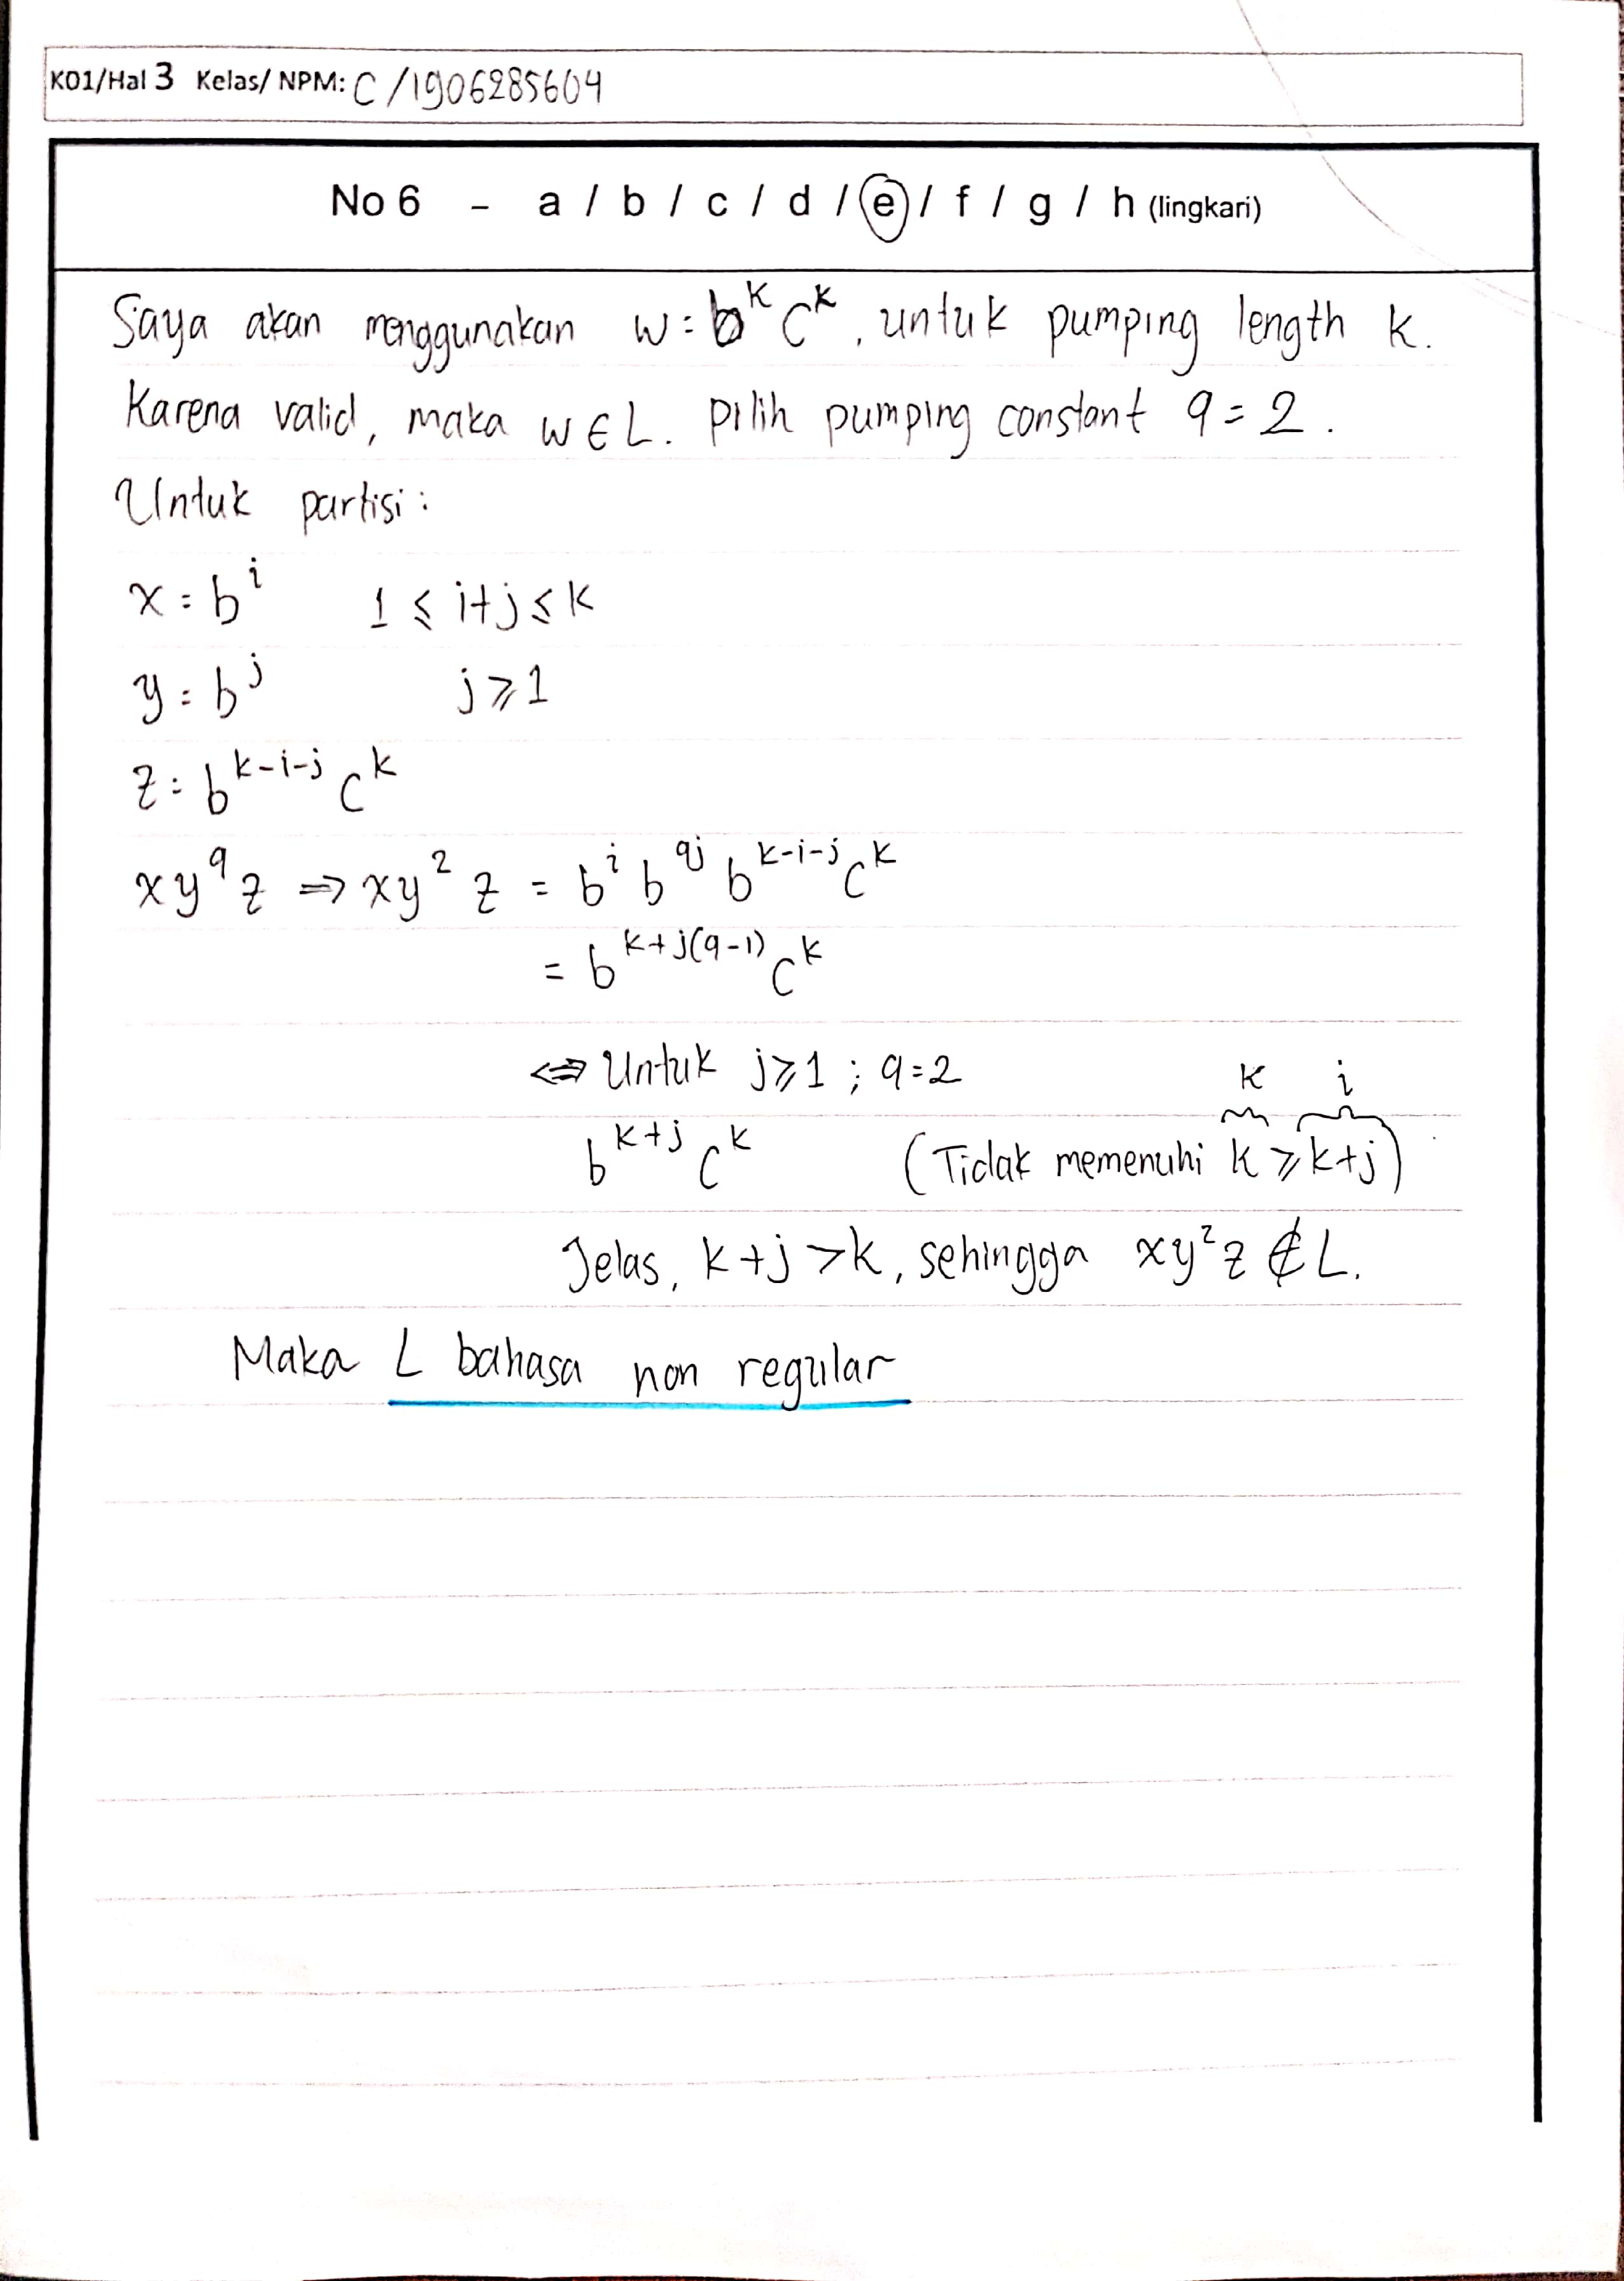 K01/Hal 3 Kelas/ NPM: C /1906285604
No 6 - a / b / c / d / e / f / g / h (lingkari)
Saya akan menggunakan w = b^k c^k, untuk pumping length k.
Karena valid, maka w ∈ L. Pilih pumping constant q = 2.
Untuk partisi:
x = b^i 1 ≤ i+j ≤ k
y = b^j j ≥ 1
z = b^{k-i-j} c^k
xy^q z ⇒ xy^2 z = b^i b^{qj} b^{k-i-j} c^k
= b^{k+j(q-1)} c^k
⇔ Untuk j ≥ 1 ; q = 2
k i
b^{k+j} c^k (Tidak memenuhi k ≥ k+j)
Jelas, k+j > k, sehingga xy^2 z ∉ L.
Maka L bahasa non regular